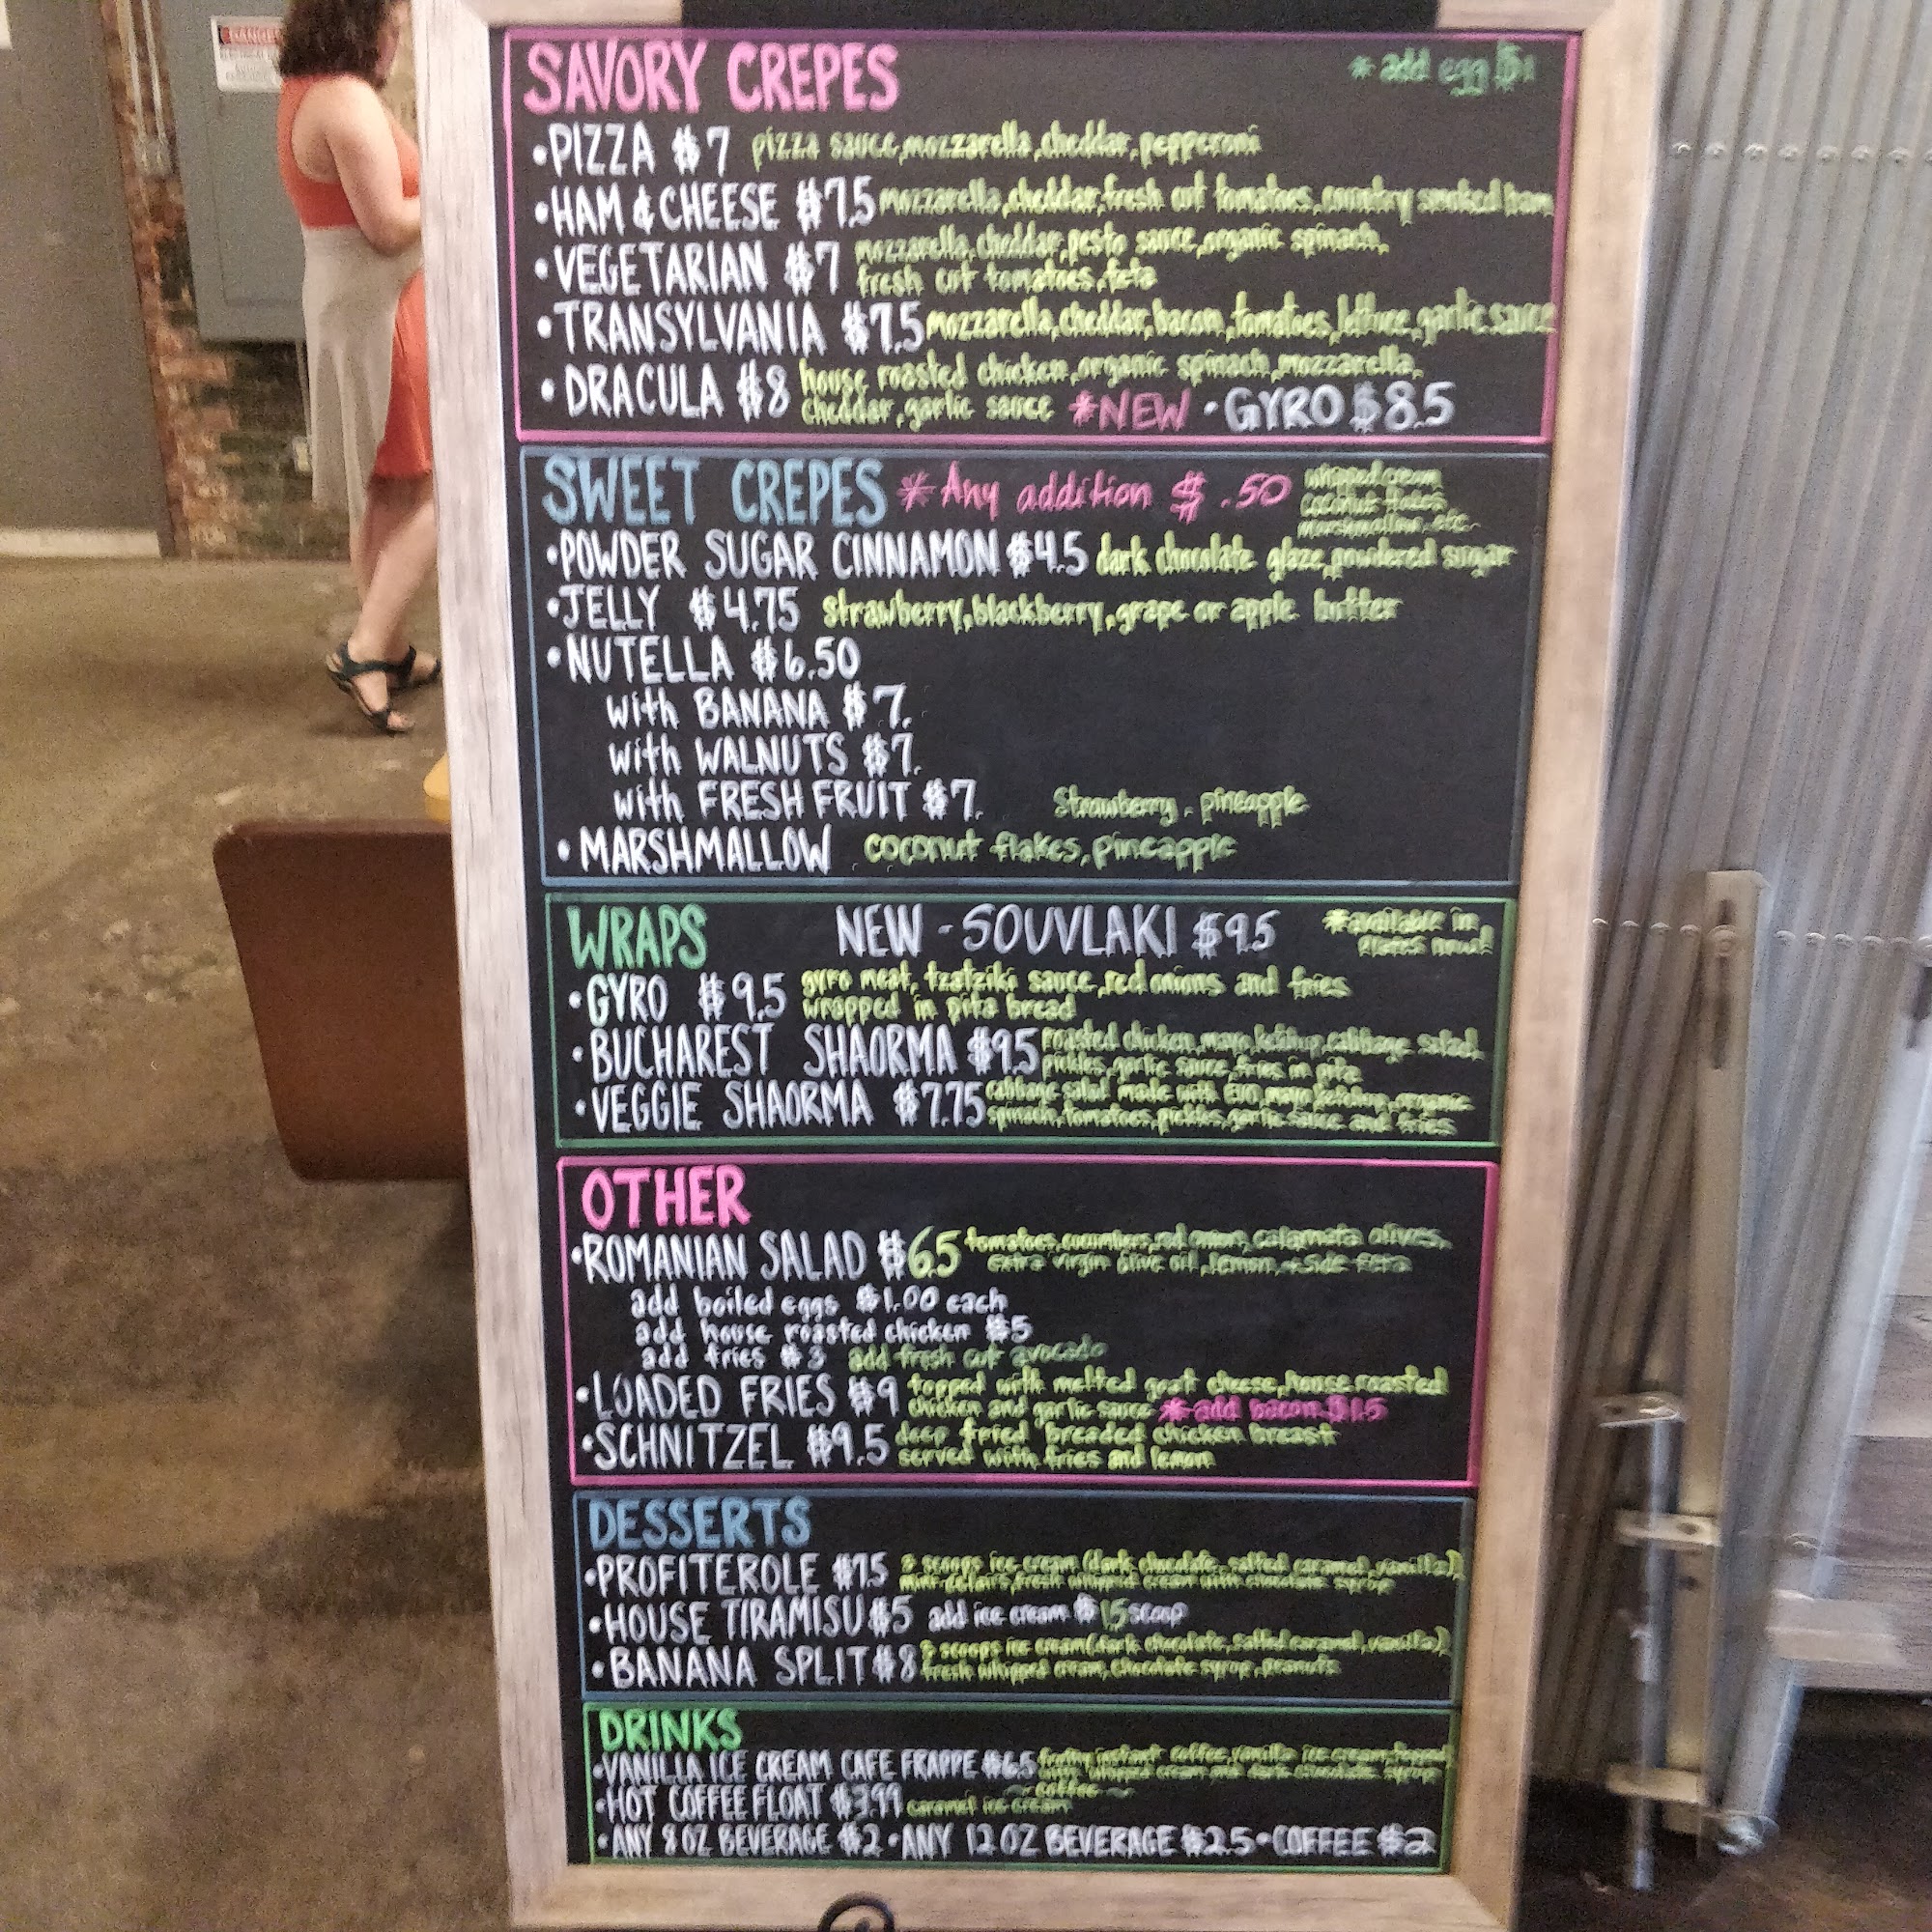 DANGER
SAVORY CREPES *add egg $1
•PIZZA $7 pizza sauce, mozzarella, cheddar, pepperoni
•HAM & CHEESE $7.5 mozzarella, cheddar, fresh cut tomatoes, country smoked ham
•VEGETARIAN $7 mozzarella, cheddar, pesto sauce, organic spinach,
fresh cut tomatoes, feta
•TRANSYLVANIA $7.5 mozzarella, cheddar, bacon, tomatoes, lettuce, garlic sauce
•DRACULA $8 house roasted chicken, organic spinach, mozzarella,
cheddar, garlic sauce *NEW •GYRO $8.5
SWEET CREPES *Any addition $.50 whipped cream
coconut flakes
marshmallow, etc.
•POWDER SUGAR CINNAMON $4.5 dark chocolate glaze, powdered sugar
•JELLY $4.75 strawberry, blackberry, grape or apple butter
•NUTELLA $6.50
with BANANA $7.
with WALNUTS $7.
with FRESH FRUIT $7. Strawberry, pineapple
•MARSHMALLOW coconut flakes, pineapple
WRAPS NEW - SOUVLAKI $9.5 *available in
plates now!
•GYRO $9.5 gyro meat, tzatziki sauce, red onions and fries
wrapped in pita bread
•BUCHAREST SHAORMA $9.5 roasted chicken, mayo, ketchup, cabbage salad,
pickles, garlic sauce, fries in pita
•VEGGIE SHAORMA $7.75 cabbage salad made with EVO, mayo, ketchup, organic
spinach, tomatoes, pickles, garlic sauce and fries
OTHER
•ROMANIAN SALAD $6.5 tomatoes, cucumbers, red onion, calamata olives,
extra virgin olive oil, lemon, + side feta
add boiled eggs $1.00 each
add house roasted chicken $5
add fries $3 add fresh cut avocado
•LOADED FRIES $9 topped with melted goat cheese, house roasted
chicken and garlic sauce *add bacon $1.5
•SCHNITZEL $9.5 deep fried breaded chicken breast
served with fries and lemon
DESSERTS
•PROFITEROLE $7.5 scoops ice cream (dark chocolate, salted caramel, vanilla),
mini eclairs, fresh whipped cream with chocolate syrup
•HOUSE TIRAMISU $5 add ice cream $1.5 scoop
•BANANA SPLIT $8 scoops ice cream (dark chocolate, salted caramel, vanilla)
fresh whipped cream, chocolate syrup, peanuts
DRINKS
•VANILLA ICE CREAM CAFE FRAPPE $6.5 frothy instant coffee, vanilla ice cream, topped
with whipped cream and dark chocolate syrup
•HOT COFFEE FLOAT $3.99 coffee
caramel ice cream
•ANY 8 OZ BEVERAGE $2 •ANY 12 OZ BEVERAGE $2.5 •COFFEE $2